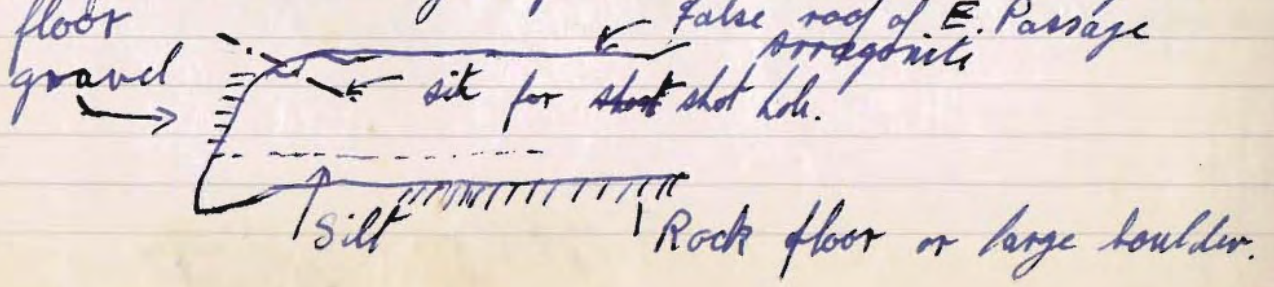 floor
False roof of E. Passage
arragonite
gravel
site for shot hole.
Silt
Rock floor or large boulder.